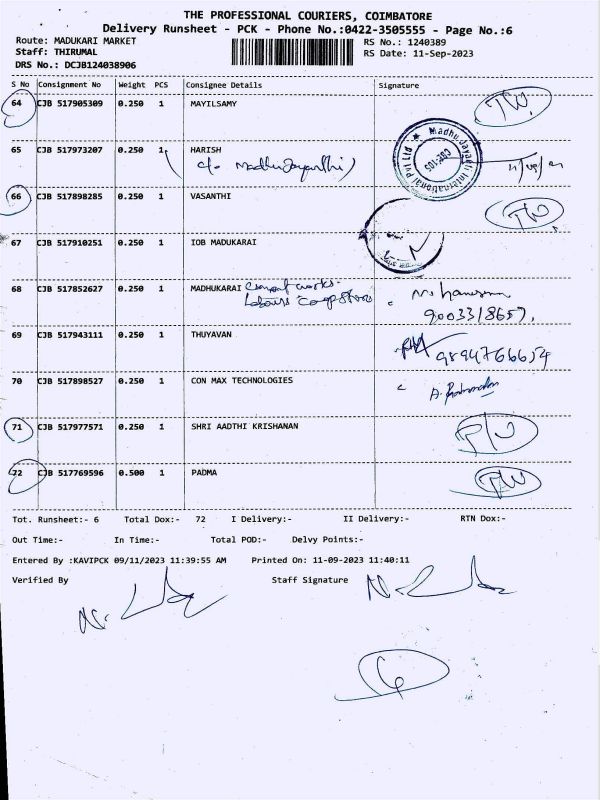 THE PROFESSIONAL COURIERS, COIMBATORE
Delivery Runsheet - PCK - Phone No.:0422-3505555 - Page No.:6
Route: MADUKARI MARKET RS No.: 1240389
Staff: THIRUMAL RS Date: 11-Sep-2023
DRS No.: DCJB124038906
S No Consignment No Weight PCS Consignee Details Signature
64 CJB 517905309 0.250 1 MAYILSAMY
65 CJB 517973207 0.250 1 HARISH
c/o Madhu Jayanthi)
Madhu Jayanti International Pvt Ltd
66 CJB 517898285 0.250 1 VASANTHI
67 CJB 517910251 0.250 1 IOB MADUKARAI
68 CJB 517852627 0.250 1 MADHUKARAI cement works
Labours Coop Store
9003318657,
69 CJB 517943111 0.250 1 THUYAVAN 9894766654
70 CJB 517898527 0.250 1 CON MAX TECHNOLOGIES
71 CJB 517977571 0.250 1 SHRI AADTHI KRISHANAN
72 CJB 517769596 0.500 1 PADMA
Tot. Runsheet:- 6 Total Dox:- 72 I Delivery:- II Delivery:- RTN Dox:-
Out Time:- In Time:- Total POD:- Delvy Points:-
Entered By :KAVIPCK 09/11/2023 11:39:55 AM Printed On: 11-09-2023 11:40:11
Verified By Staff Signature